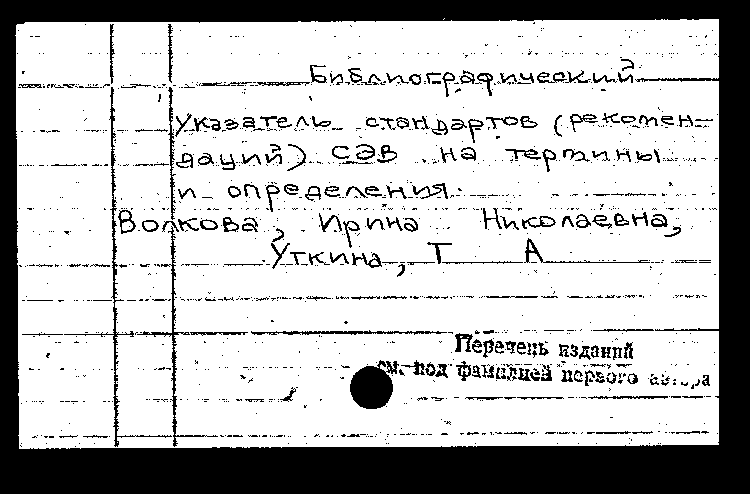 Библиографический
указатель стандартов (рекомен-
даций) СЭВ на термины
и определения.
Волкова, Ирина Николаевна,
Уткина, Т А
Перечень изданий
см. под фамилией первого автора